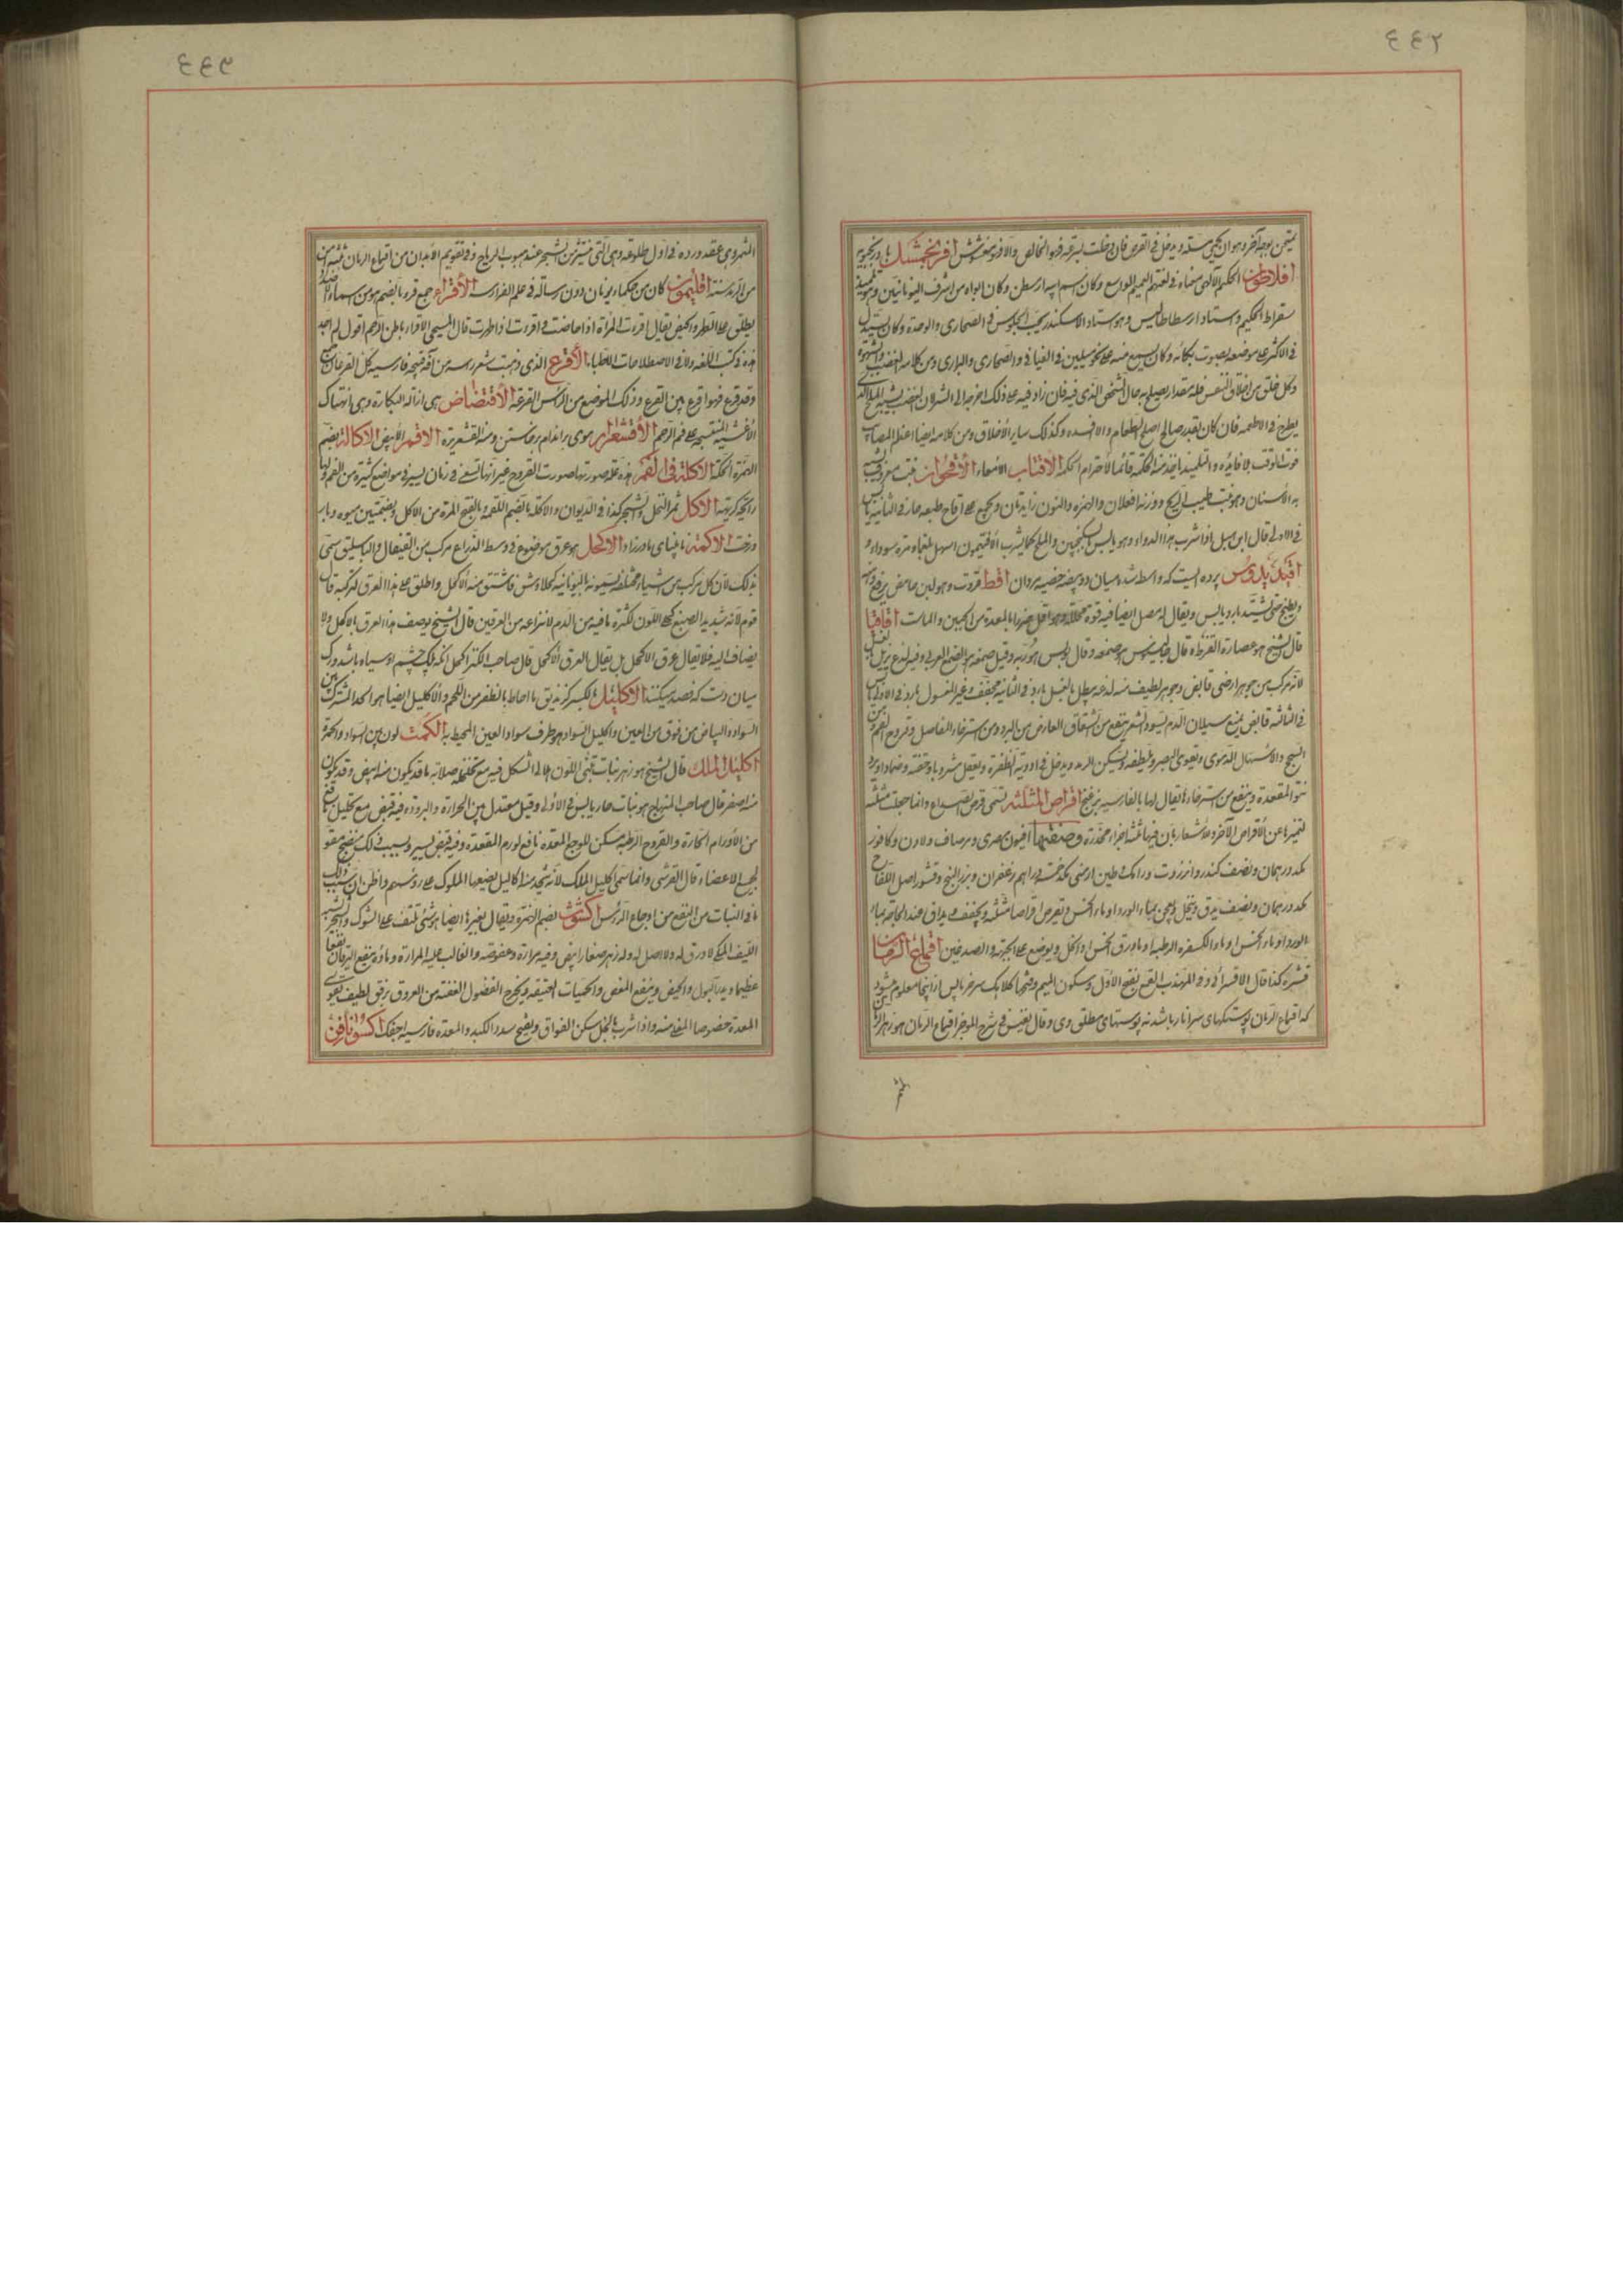 ٤٤٢
یمتحن بوجه آخر وهو ان یحمی مسلة ویدخل فی القرص فان دخلت بسرعة فهو الخالص والا فهو مغشوش افرنجمشک بادرنجبویه
افلاطون الحکیم الالهی معناه فی لغتهم العمیم الواسع وکان اسم ابیه ارسطن وکان ابواه من اشرف الیونانیین وهو تلمیذ
سقراط الحکیم واستاد ارسطاطالیس وهو استاد الاسکندر یحب الجلوس فی الصحاری والوحدة وکان یستدل
فی الاکثر علی موضعه بصوت بکائه وکان یسمع منه علی نحو میلین فی الفیافی والصحاری والبراری ومن کلامه الغضب والشهوة
وکل خلق من اخلاق النفس فله مقدار یصلح به حال الشخص الذی فیه فان زاد فیه علی ذلک اخرجه الی الشر لان الغضب یشبه الملح الذی
یطرح فی الاطعمة فان کان بقدر صالح اصلح الطعام والا افسده وکذلک سایر الاخلاق ومن کلامه ایضا اعظم المصایب
فوت الوقت بلا فایدة والتلمیذ یاخذ منه الحکمة قائما لاحترام الحکمة الاقتاب الامعاء الاقحوان نبت معروف یشبه
به الاسنان وهو نبت طیب الریح ووزنه افعلان والهمزة والنون زایدتان ویجمع علی اقاح طبعه حار فی الثانیة یابس
فی الاولی قال ابن اسل اذا شرب هذا الدواء وهو یابس بسکنجبین والملح کما یشرب الافتیمون اسهل بلغما ومرة سوداء
افیدیدوس پرده ایست که واسط شده میان دو بیضه خصیه مردان اقط قروت وهو لبن حامض ینزع دهنه
ویطبخ حتی یشتد بارد یابس ویقال له مصل ایضا فیه قوة محللة وهو اقل ضررا بالمعدة من الجبن والماست اقاقیا
قال الشیخ هو عصارة القرظ وقال جالینوس هو صمغه وقال بولس هو ربه وقیل صمغه هو الصمغ العربی وفیه لذع یزیل بالغسل
لانه مرکب من جوهر ارضی قابض وجوهر لطیف منه لذعه یبطل بالغسل بارد فی الثانیة مجفف وغیر المغسول بارد فی الاولی یابس
فی الثالثة قابض یمنع سیلان الدم یسود الشعر ینفع من الشقاق العارض من البرد ومن استرخاء المفاصل وقروح الفم ومن
السحج والاسهال الدموی ویقوی البصر ویلطفه ویسکن الرمد ویدخل فی ادویة الظفرة ویعقل مشروبا وحقنة وضمادا ویرد
نتو المقعدة وینفع من استرخائها یقال لها بالفارسیة برغنج اقراص المثلثه تسمی قرص الصداع وانما جعلت مثلثة
لتمیزها عن الاقراص الاخرة للاشعار بان فیها ثلثة اجزاء مخدرة وصنعتها افیون مصری ومرصاف ولادن وکافور
یکدورهمان ونصف کندر وانزروت ورامک وطین ارمنی یکدخمسه دراهم زعفران وبزرالبنج وقشور اصل اللفاح
یکدورهمان ونصف یدق وینخل ویعجن بماء الورد او ماء الخس ویقرص اقراصا مثلثة ویجفف ویداف عند الحاجة بماء
الورد او ماء الخس او ماء الکسفره الرطبة او ماء ورق الخس والخل ویوضع علی الجبهة والصدغین اقماع الرمان
قشره کذا قال الاقسرائی وفی المهذب القمع بفتح الاول وسکون المیم وفتحها کلاهک سر خرما پس ازاینجا معلوم میشود
که اقماع الرمان پوستکهای سر انار باشد نه پوستهای مطلق وی وقال نفیس فی شرح الموجز اقماع الرمان هو زهر الرمان
الثمر
٤٤٣
الثمر وهی عقد ورده فی اول طلوعه وهی التی تنتثر من الشجر عند هبوب الریاح وفی تقویم الابدان من اقماع الرمان
اقلیمون کان من حکماء یونان دون رسالة فی علم الفراسة الاقراء جمع قرء بالضم هو من اسماء الاضداد
یطلق علی الطهر والحیض یقال اقرءت المرأة اذا حاضت واقرءت اذا طهرت قال المسیحی الاقراء باطن الرحم اقول لم اجد
هذه فی کتب اللغة ولا فی الاصطلاحات الاطباء الاقرع الذی ذهبت شعر راسه من آفة فارسیه کل القرعان جمع
وقد قرع فهو اقرع بین القرع وذلک الموضع من الراس القرعة الاقتضاض هی ازالة البکارة وهی انتهاک
الاغشیة المنتسجة علی فم الرحم الاقشعرار موی بر اندام برخاستن ومنه القشعریرة الاقمر الابیض الاکالة بضم
الهمزة الحکة الاکلة فی الفم هذه علة صورتها صورت القروح غیر انها تسعی فی زمان یسیر فی مواضع کثیرة من الفم ولها
رائحة کریهة الاکل ثمر النخل والشجر کذا فی الدیوان والاکلة بالضم اللقمة وبالفتح المرة من الاکل وبضمتین میوه وبار
درخت الاکمه نابینای مادرزاد الاکحل هو عرق موضوع فی وسط الذراع مرکب من القیفال والباسلیق سمی
بذلک لان کل مرکب من اشیاء مختلفة یسمونه بالیونانیة کحلاوش فاشتق منه الاکحل واطلق علی هذا العرق لترکبه قال
قوم لانه شدید الصبغ کحلی اللون لکثرة ما فیه من الدم لانتزاعه من العرقین قال الشیخ یوصف هذا العرق بالاکحل ولا
یضاف الیه فلا یقال عرق الاکحل بل یقال العرق الاکحل قال صاحب الکنز اکحل آنکه پلک چشم او سیاه باشد ورک
میان دست که فصد میکنند الاکلیل بالکسر کزندیق ما احاط بالظفر من اللحم والاکلیل ایضا هو الحد المشترک بین
السواد والبیاض من فوق من العین واکلیل السواد هو طرف سواد العین المحیط به الکمت لون بین السواد والحمرة
اکلیل الملک قال الشیخ هو زهر نبات تبنی اللون هلالی الشکل فیه مع تخلخله صلابة ما قد یکون منه ابیض وقد یکون
منه اصفر قال صاحب المنهاج هو نبات حار یابس فی الاولی وقیل معتدل بین الحرارة والبرودة فیه قبض مع تحلیل نافع
من الاورام الحارة والقروح الرطبة مسکن للوجع المعدة نافع لورم المقعدة وفیه قبض یسیر وبسبب ذلک منضج مقو
لجمیع الاعضاء قال القرشی وانما سمی اکلیل الملک لانه یتخذ منه اکالیل یضعها الملوک علی رؤسهم واظن ان سبب ذلک
ما فی النبات من النفع من اوجاع الرأس اکشوث بضم الهمزة ویقال بغیرها ایضا هو شئ یلتف علی الشوک والشجر یشبه
اللیف المکی لا ورق له ولا اصل له وله زهر صغار ابیض وفیه مرارة وعفوصة والغالب علیه المرارة وماؤه ینفع الیرقان نفعا
عظیما ویدر البول والحیض وینفع المغص والحمیات العتیقة ویخرج الفضول العفنة من العروق برفق لطیف یقوی
المعدة خصوصا المقلی منه واذا شرب بالخل سکن الفواق ویفتح سدد الکبد والمعدة فارسیه اجفک اکسونافن